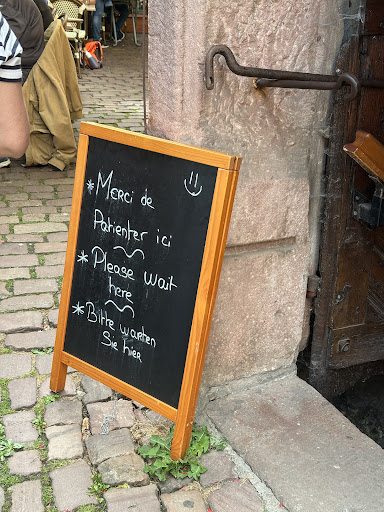 * Merci de
Patienter ici
* Please wait
here
* Bitte warten
Sie hier